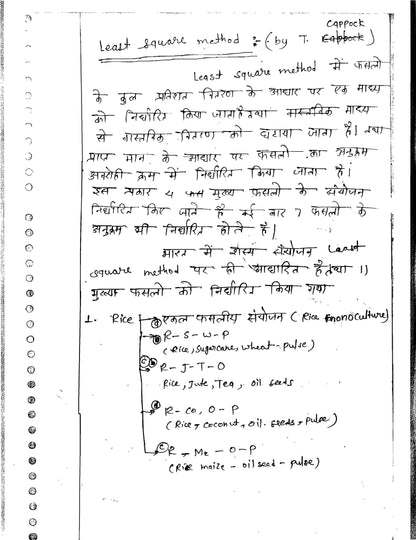 Cappock
Least square method :- (by T. Cabbock)
Least square method में फसलो
के कुल प्रतिशत वितरण के आधार पर एक माध्य
को निर्धारित किया जाता है तथा वास्तविक माध्य
से वास्तविक वितरण को घटाया जाता है। तथा
प्राप्त मान के आधार पर फसलो का अनुक्रम
अवरोही क्रम में निर्धारित किया जाता है।
इस प्रकार 4 फस मुख्य फसलो के संयोजन
निर्धारित किए जाते है कई बार 7 फसलो के
अनुक्रम भी निर्धारित होते है।
भारत में शस्य संयोजन Least
square method पर ही आधारित है तथा 11
मुख्य फसलो को निर्धारित किया गया
1. Rice → (a) एकल फसलीय संयोजन (Rice monoculture)
(b) R-S-W-P
(Rice, Sugarcane, wheat - pulse)
(c) R-J-T-O
Rice, Jute, Tea, oil seeds
(d) R- Co, O-P
(Rice, coconut, oil. seeds, pulse)
(e) R, Me - O-P
(Rice maize - oil seed - pulse)